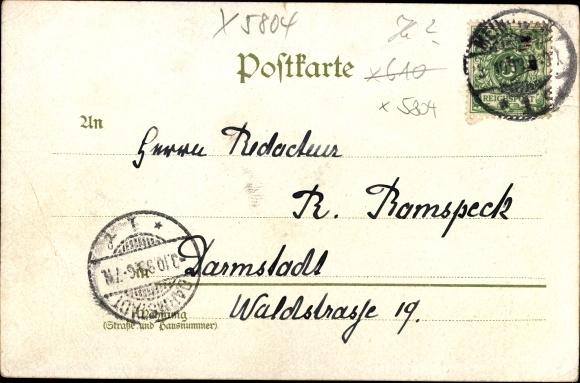 x 5804
Postkarte
x 610
x 5804
REICHSPOST
An
Herrn Redacteur
R. Ramspeck
in
Darmstadt
Waldstrasse 19.
Wohnung
(Straße und Hausnummer)
DARMSTADT